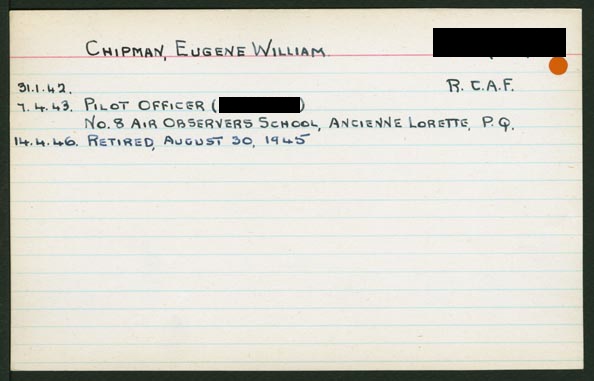 CHIPMAN, EUGENE WILLIAM
31.1.42. R.C.A.F.
7.4.43. PILOT OFFICER ( )
No. 8 AIR OBSERVERS SCHOOL, ANCIENNE LORETTE, P.Q.
14.4.46. RETIRED, AUGUST 30, 1945